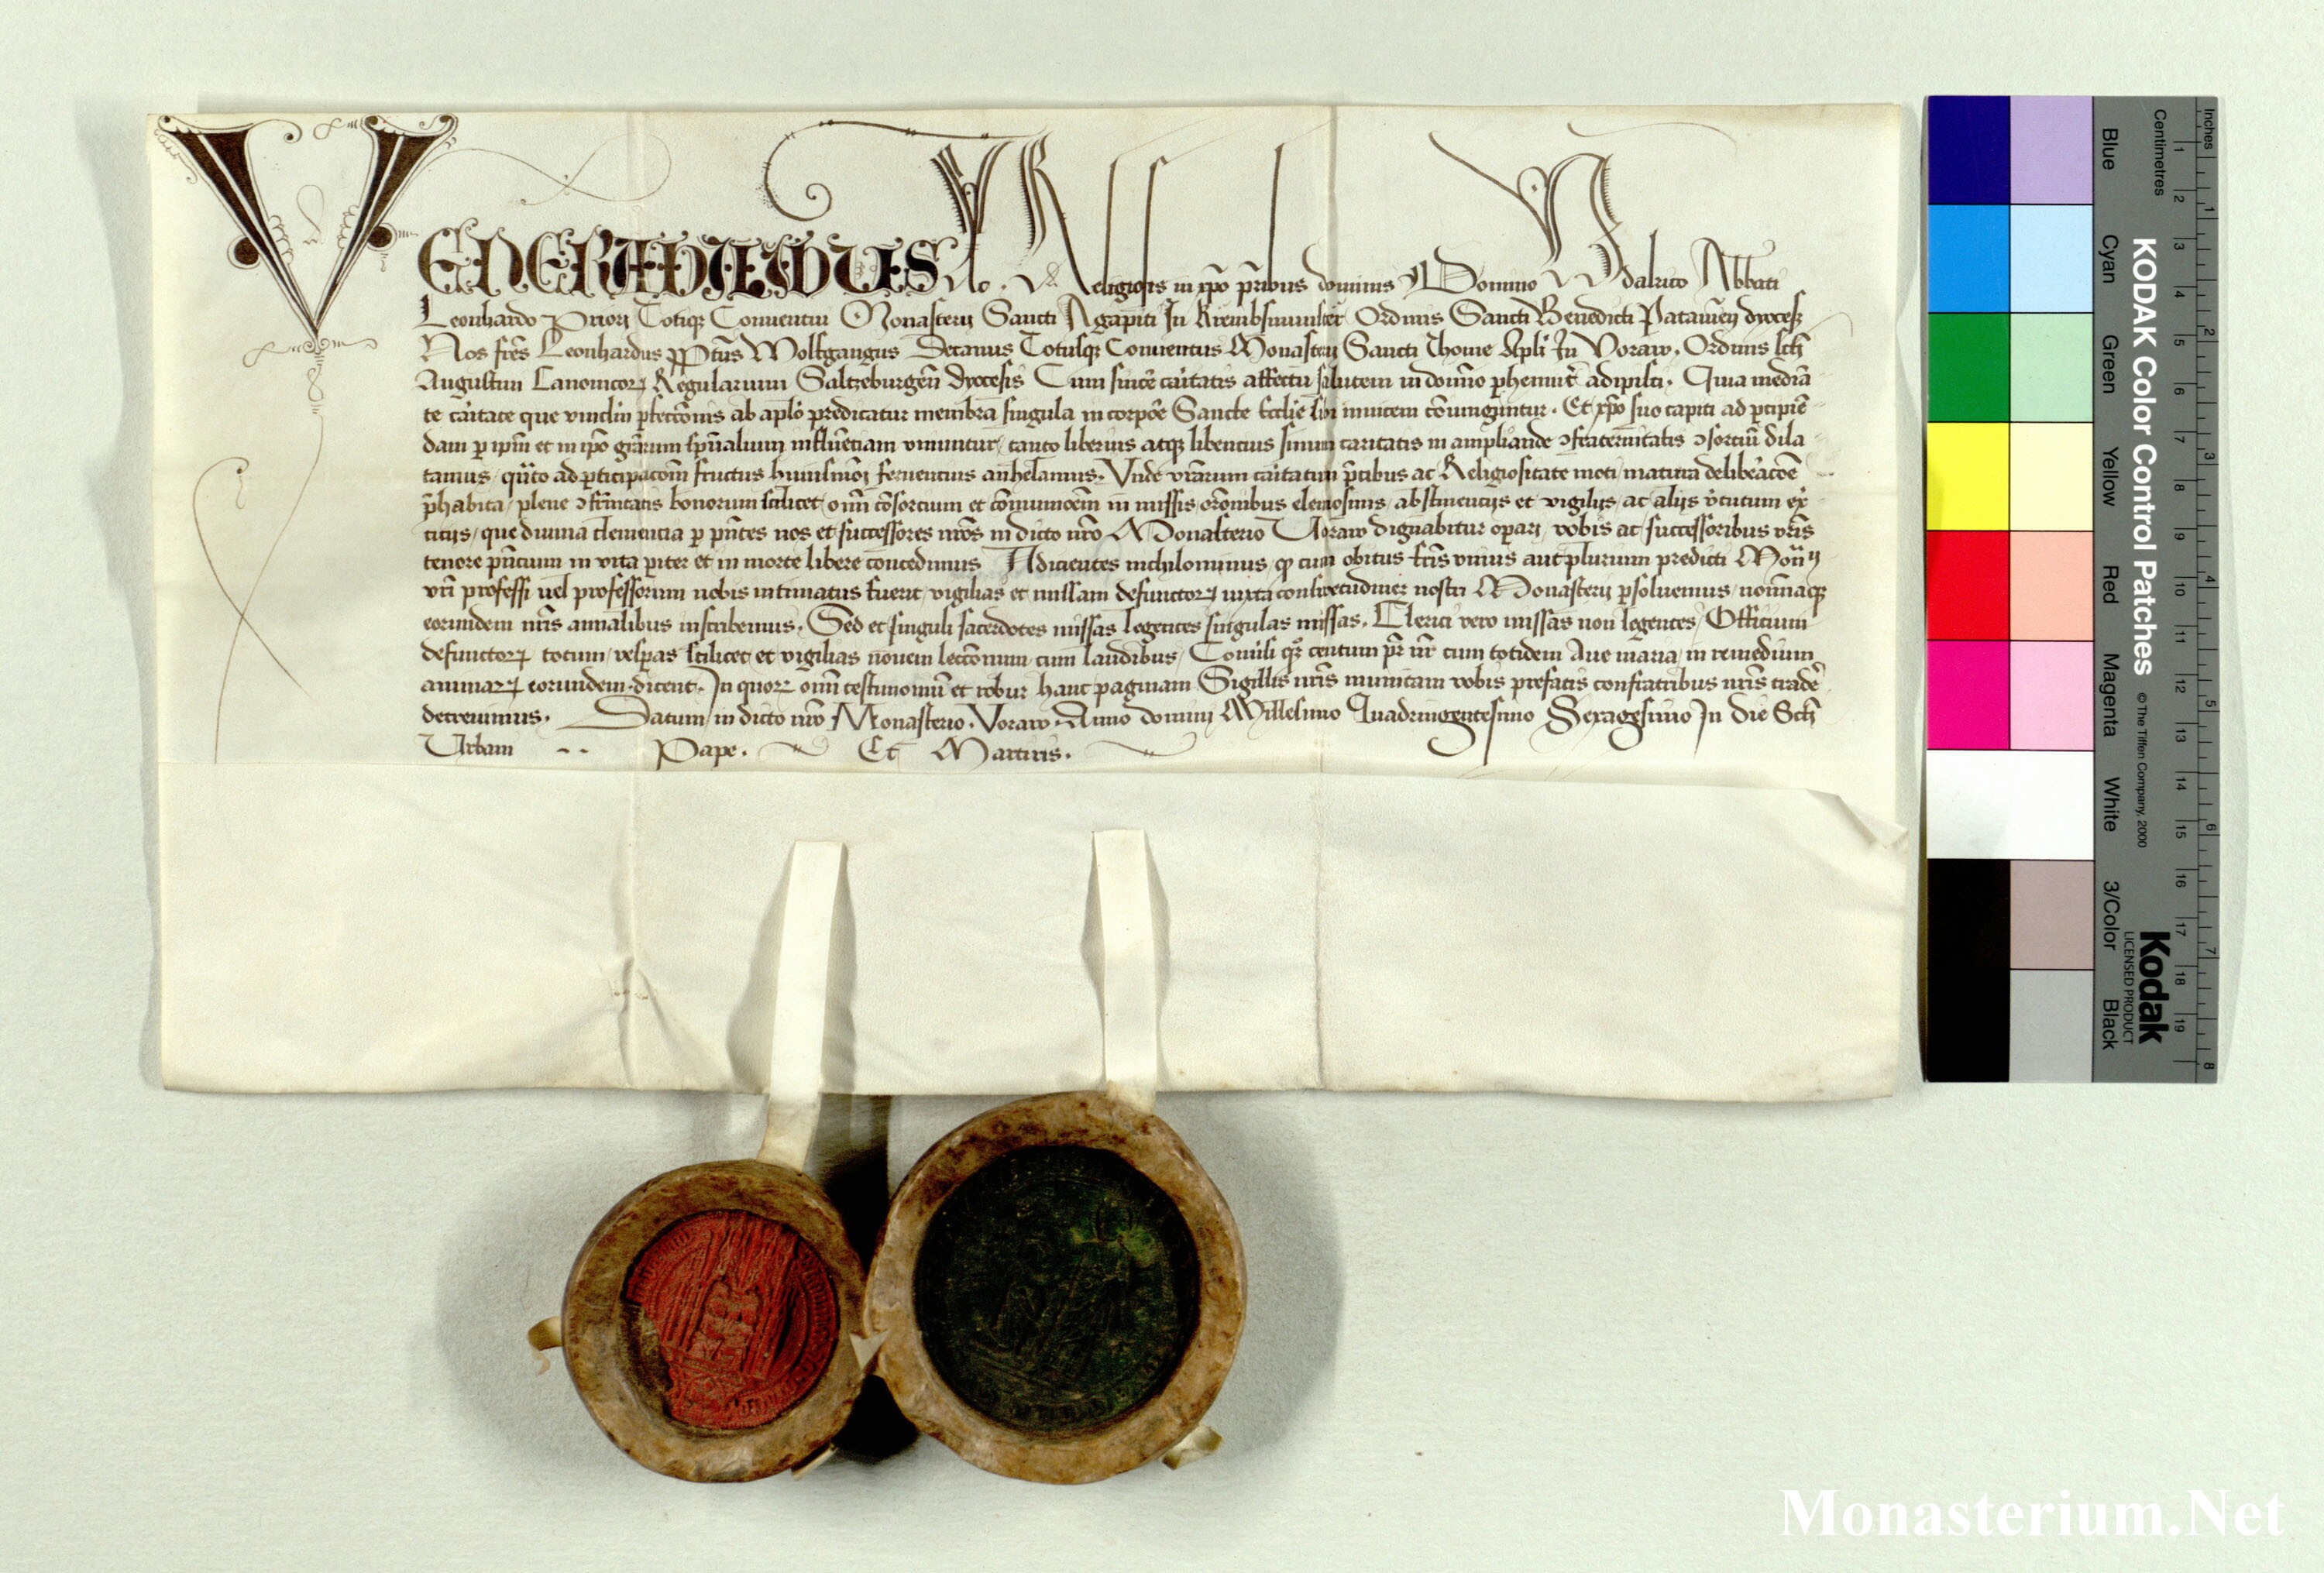 VENERABILIBUS Ac Religiosis in xpo pribus dominis Domino Vdalrico Abbati
Leonhardo Priori Totiqz Conuentui Monasterij Sancti Agapiti In Krembsmunster Ordinis Sancti Benedicti Patauien dyocesis
Nos fres Leonhardus ppositus Wolfgangus Decanus Totusqz Conuentus Monasterij Sancti Thome Apli In Voraw. Ordinis scti
Augustini Canonicorz Regularium Saltzeburgen dyocesis Cum sincere caritatis affectu salutem in domino phennit adipisci. Quia media
te caritate que vinclm pfectionis ab aplo predicatur membra singula in corpore Sancte Ecclie sibi inuicem coniunguntur. Et xpo suo capiti ad pcipie
dam p ipm et in ipo grarum spualium influentiam vniuntur, tanto liberius atqz libencius sinum caritatis in ampliande cfraternitatis csorciu dila
tamus, qto ad pticipacom fructus huiusmoi feruencius anhelamus. Vnde vrarum caritatum pcibus ac Religiositate moti, matura deliberacoe
phabita, plene cfrnitatis bonorum scilicet, oim consorcium et comunioem in missis, oronibus elemosinis, abstinencijs et vigilijs, ac alijs virtutum exer
cicijs, que diuina clemencia p pntes nos et successores nros in dicto nro Monasterio Voraw dignabitur operari, vobis ac successoribus vris
tenore pncium in vita piter et in morte libere concedimus Adicientes nichilominus, qz cum obitus fris vnius aut plurium predicti Monrij
vri professi uel professorum nobis intimatus fuerit, vigilias et missam defunctorz iuxta consuetudinem nostri Monasterij psoluemus, noiaqz
eorundem nris annalibus inscribemus. Sed et singuli sacerdotes missas legentes singulas missas. Clerici vero missas non legentes, Officium
defunctorz totum, vesperas scilicet et vigilias nouem leccionum cum laudibus, Conuersi qz centum pr nr cum totidem Aue maria, in remedium
animarz eorundem dicent. In quorz oim testimoniu et robur hanc paginam Sigillis nris munitam vobis prefatis confratribus nris tradere
decreuimus. Datum in dicto nro Monasterio Voraw Anno domini Millesimo Quadringentesimo Sexagesimo In die Scti
Urbani Pape. Et Martiris.
Inches
Centimetres
KODAK Color Control Patches © The Tiffen Company, 2000
Kodak
LICENSED PRODUCT
Blue Cyan Green Yellow Red Magenta White 3/Color Black
1 2 3 4 5 6 7 8 9 10 11 12 13 14 15 16 17 18 19
1 2 3 4 5 6 7 8
Monasterium.Net